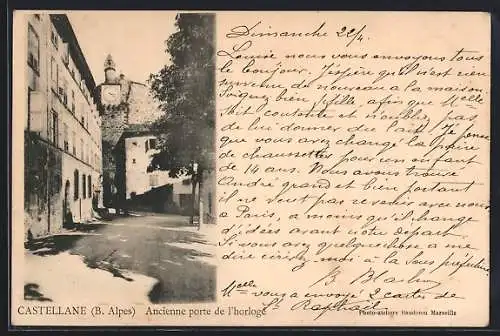 Dimanche 22/4.
Louise nous vous envoyons tous
le bonjour. J'espère qu'il n'est rien
survenu de nouveau à la maison.
Soignez bien fifille afin que Melle
soit contente et n'oubliez pas
de lui donner du lait. Je pense
que vous avez changé la paire
de chaussettes pour un enfant
de 14 ans. Nous avons trouvé
André grand et bien portant
il ne veut pas revenir avec nous
à Paris, à moins qu'il change
d'idées avant notre départ.
Si vous avez quelque chose à me
dire écrivez moi à la sous préfecture
B.
Melle vous a envoyé 2 cartes de
St Raphaël
CASTELLANE (B. Alpes) Ancienne porte de l'horloge
Photo-ateliers Baudouin Marseille